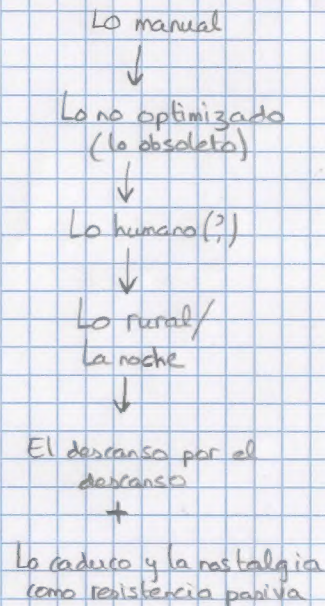 Lo manual
↓
Lo no optimizado
(lo obsoleto)
↓
Lo humano(?)
↓
Lo rural/
La noche
↓
El descanso por el
descanso
+
Lo caduco y la nostalgia
como resistencia pasiva